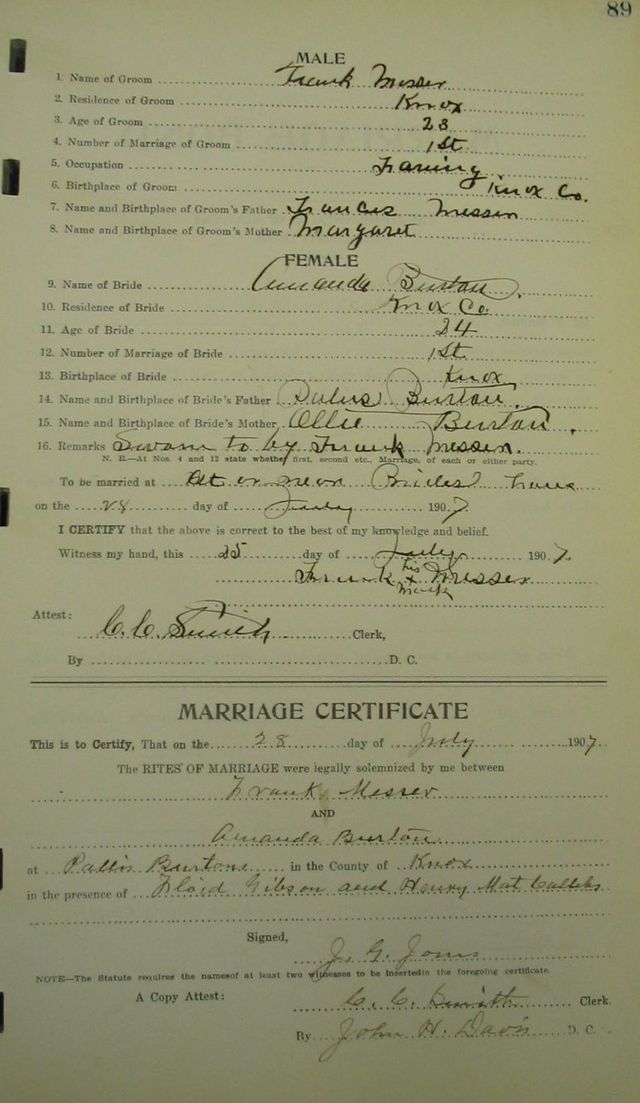 89
MALE
1. Name of Groom Frank Messer
2. Residence of Groom Knox
3. Age of Groom 23
4. Number of Marriage of Groom 1st
5. Occupation Farming
6. Birthplace of Groom Knox Co.
7. Name and Birthplace of Groom's Father Francis Messer
8. Name and Birthplace of Groom's Mother Margaret
FEMALE
9. Name of Bride Amanda Burton
10. Residence of Bride Knox Co.
11. Age of Bride 24
12. Number of Marriage of Bride 1st
13. Birthplace of Bride Knox
14. Name and Birthplace of Bride's Father Burton
15. Name and Birthplace of Bride's Mother Ollie Burton
16. Remarks Sworn to by Frank Messer.
N. B.—At Nos. 4 and 12 state whether first, second etc., Marriage, of each or either party.
To be married at At or near Brides house
on the 28 day of July 1907
I CERTIFY that the above is correct to the best of my knowledge and belief.
Witness my hand, this 25 day of July 1907
Frank his x mark Messer
Attest:
C. C. Smith Clerk,
By D. C.
MARRIAGE CERTIFICATE
This is to Certify, That on the 28 day of July 1907
The RITES OF MARRIAGE were legally solemnized by me between
Frank Messer
AND
Amanda Burton
at Burtons in the County of Knox
in the presence of Floid Gibson and Henry
Signed,
J. G. Jones
NOTE—The Statute requires the names of at least two witnesses to be inserted in the foregoing certificate.
A Copy Attest: C. C. Smith Clerk.
By John H. Davis D. C.